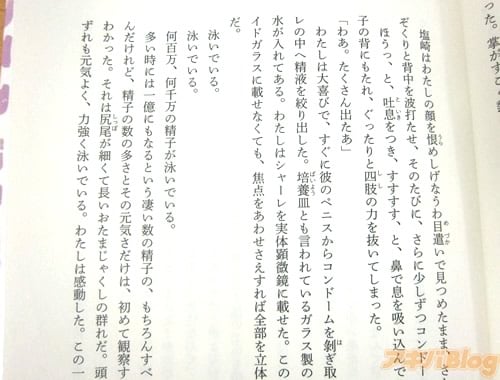 った。掌がすご
塩崎はわたしの顔を恨めしげなうわ目遣いで見つめたまま、さ
ぞくりと背中を波打たせ、そのたびに、さらに少しずつコンドー
ほうっ、と、吐息をつき、すすすす、と、鼻で息を吸い込んで
子の背にもたれ、ぐったりと四肢の力を抜いてしまった。
「わあ。たくさん出たあ」
わたしは大喜びで、すぐに彼のペニスからコンドームを剝ぎ取
レの中へ精液を絞り出した。培養皿とも言われているガラス製の
水が入れてある。わたしはシャーレを実体顕微鏡に載せた。この
イドガラスに載せなくても、焦点をあわせさえすれば全部を立体
だ。
泳いでいる。
泳いでいる。
何百万、何千万の精子が泳いでいる。
多い時には一億にもなるという凄い数の精子の、もちろんすべ
んだけれど、精子の数の多さとその元気さだけは、初めて観察す
わかった。それは尻尾が細くて長いおたまじゃくしの群れだ。頭
ずれも元気よく、力強く泳いでいる。わたしは感動した。この一
アキバBlog